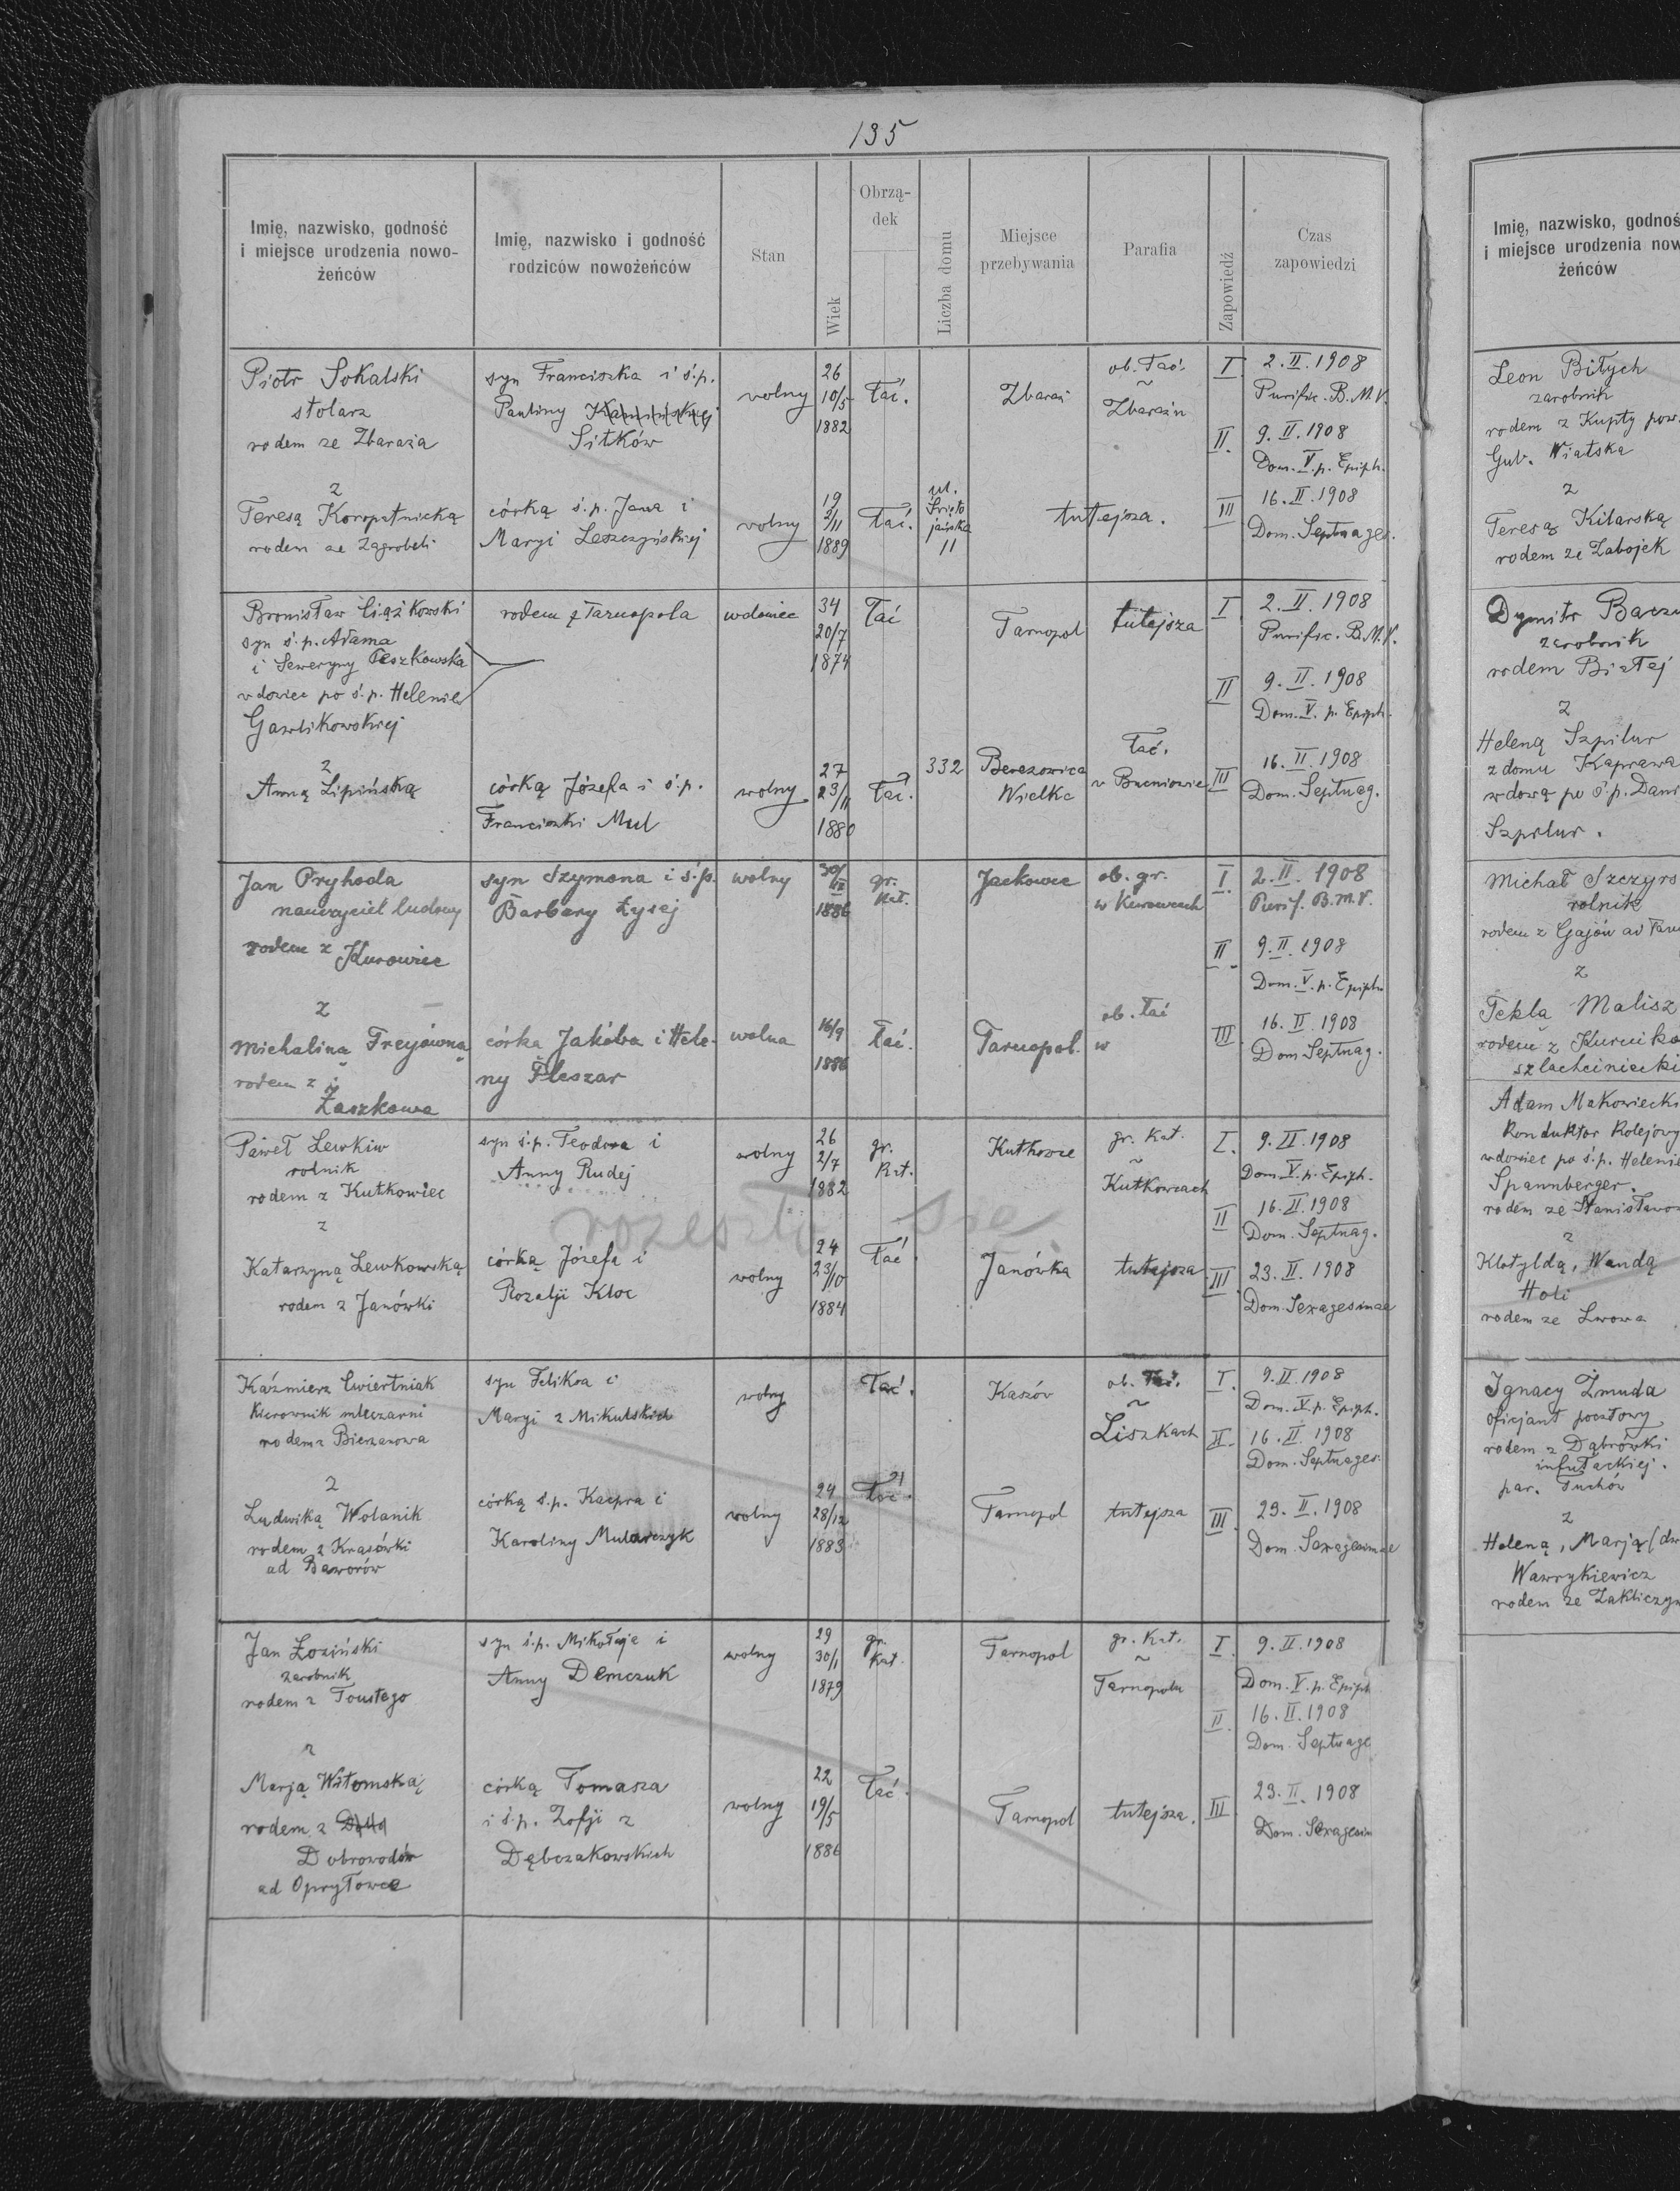 135
Imię, nazwisko, godność
i miejsce urodzenia nowo-
żeńców
Imię, nazwisko i godność
rodziców nowożeńców
Stan
Wiek
Obrzą-
dek
Liczba domu
Miejsce
przebywania
Parafia
Zapowiedź
Czas
zapowiedzi
Piotr Sokalski
stolarz
rodem ze Zbaraża
syn Franciszka i ś.p.
Pauliny Kamińskiej
Sitków
wolny
26
10/5
1882
łać.
Zbaraż
ob. łać.
~
Zbarażu
I
2. II. 1908
Purific. B. M. V.
II.
9. II. 1908
Dom. V. p. Epiph.
z
Teresą Koropatnicką
rodem ze Zagrobeli
córką ś.p. Jana i
Maryi Leszczyńskiej
wolny
19
2/11
1889
łać.
ul.
Święto
jańska
11
tutejsza.
III
16. II. 1908
Dom. Septuages.
Bronisław Ciążkowski
syn ś.p. Adama
i Seweryny Peszkowska
wdowiec po ś.p. Helenie
Gawlikowskiej
rodem z Tarnopola
wdowiec
34
20/7
1874
łać
Tarnopol
tutejsza
I
2. II. 1908
Purific. B. M. V.
II
9. II. 1908
Dom. V. p. Epiph.
z
Anną Lipińską
córką Józefa i ś.p.
Franciszki Mul
wolny
27
23/11
1880
łać.
332
Berezowica
Wielka
łać.
w Bucniowie
III
16. II. 1908
Dom. Septuag.
Jan Pryhoda
nauczyciel ludowy
rodem z Kurowiec
syn Szymona i ś.p.
Barbary Łysej
wolny
1886
gr.
kat.
Jackowce
ob. gr.
w Kurowcach
I.
2. II. 1908
Purif. B. M. V.
II
9. II. 1908
Dom. V. p. Epiph.
z
Michaliną Freyówną
rodem z
Zaszkowa
córka Jakóba i Hele-
ny Pleszar
wolna
16/9
1886
łać.
Tarnopol.
ob. łać
w
III
16. II. 1908
Dom Septuag.
Paweł Lewkiw
rolnik
rodem z Kutkowiec
syn ś.p. Teodora i
Anny Rudej
wolny
26
2/7
1882
gr.
kat.
Kutkowce
gr. kat.
~
Kutkowcach
I.
9. II. 1908
Dom. V. p. Epiph.
II
16. II. 1908
Dom. Septuag.
rozeszło się
z
Katarzyną Lewkowską
rodem z Janówki
córką Józefa i
Rozalji Kloc
wolny
24
23/10
1884
łać.
Janówka
tutejsza
III.
23. II. 1908
Dom. Sexagesimae
Kaźmierz Ćwiertniak
kierownik mleczarni
rodem z Bierzanowa
syn Feliksa i
Maryi z Mikulskich
wolny
łać.
Kaszów
ob. łać.
~
Liszkach
I.
9. II. 1908
Dom. V. p. Epiph.
II.
16. II. 1908
Dom. Septuages.
z
Ludwiką Wolanik
rodem z Krasówki
ad Baworów
córką ś.p. Kacpra i
Karoliny Mularczyk
wolny
24
28/12
1883
łać.
Tarnopol
tutejsza
III.
23. II. 1908
Dom. Sexagesimae
Jan Łoziński
zarobnik
rodem z Toustego
syn ś.p. Mikołaja i
Anny Demczuk
wolny
29
30/1
1879
gr.
kat.
Tarnopol
gr. kat.
~
Tarnopolu
I.
9. II. 1908
Dom. V. p. Epiph
II.
16. II. 1908
Dom. Septuage
z
Marją Witomską
rodem z
Dobrowodów
ad Opryłowce
córką Tomasza
i ś.p. Zofji z
Dębczakowskich
wolny
22
19/5
1886
łać.
Tarnopol
tutejsza.
III.
23. II. 1908
Dom. Sexagesim
Imię, nazwisko, godnoś
i miejsce urodzenia now
żeńców
Leon Bitych
zarobnik
rodem z Kupty pow.
Gub. Wiatska
z
Teresą Kitarską
rodem ze Zabojek
Dymitr Baczu
zarobnik
rodem Białej
z
Heleną Szpilur
z domu Kaprawa
wdową po ś.p. Dani
Szpilur.
Michał Szczyrs
rolnik
rodem z Gajów ad Tarn
z
Tekla Malisz
rodem z Kurnika
szlachciniecki
Adam Makowiecki
Konduktor kolejowy
wdowiec po ś.p. Helenie
Spannberger.
rodem ze Stanisławo
z
Klotyldą, Wandą
Holi
rodem ze Lwowa
Ignacy Żmuda
oficjant pocztowy
rodem z Dąbrówki
infułackiej.
par. Tuchów
z
Heleną, Marją (dw
Wawrykiewicz
rodem ze Zakliczyn